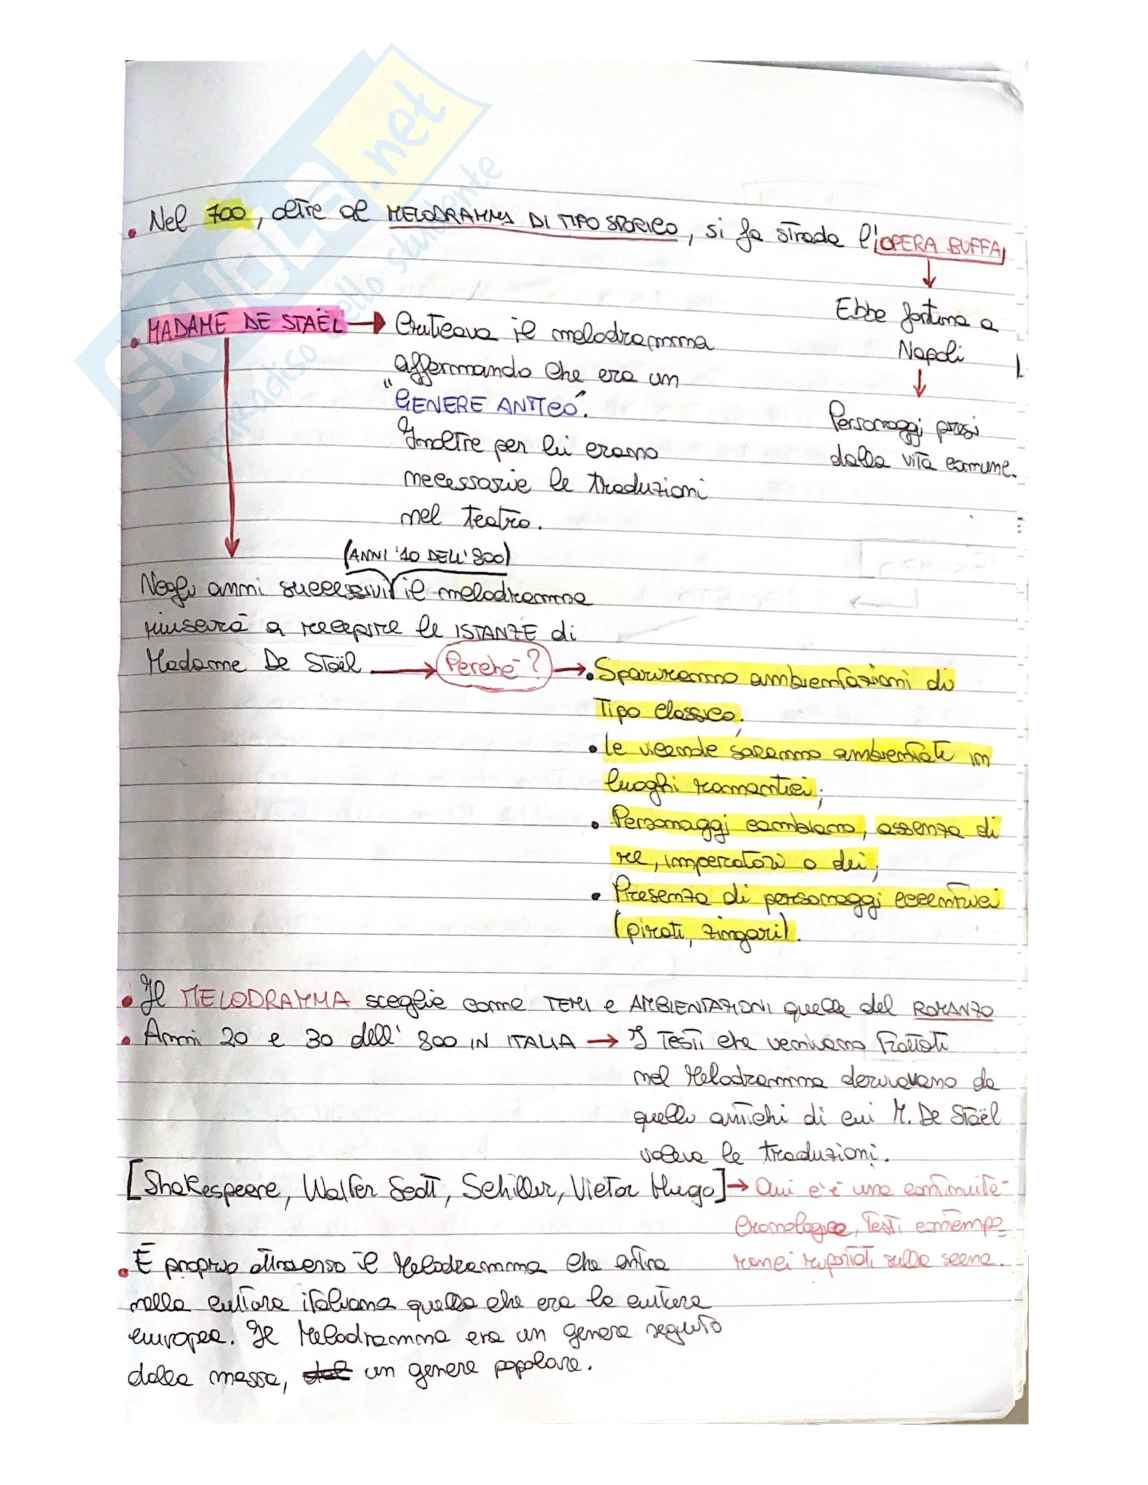 • Nel 700, oltre al MELODRAMMA DI TIPO STORICO, si fa strada l'OPERA BUFFA
Ebbe fortuna a
Napoli
Personaggi presi
dalla vita comune.
• MADAME DE STAËL → Criticava il melodramma
affermando che era un
"GENERE ANTICO".
Inoltre per lei erano
necessarie le traduzioni
nel teatro.
(ANNI '10 DELL'800)
Negli anni successivi il melodramma
riuscirà a recepire le ISTANZE di
Madame De Staël → Perché? → • Spariranno ambientazioni di
tipo classico.
• le vicende saranno ambientati in
luoghi romantici;
• Personaggi cambiano, assenza di
re, imperatori o dei;
• Presenza di personaggi eccentrici
(pirati, zingari).
• Il MELODRAMMA sceglie come TEMI e AMBIENTAZIONI quelle del ROMANZO
• Anni 20 e 30 dell'800 IN ITALIA → I testi che venivano trattati
nel Melodramma derivavano da
quelli antichi di cui M. De Staël
voleva le traduzioni.
[Shakespeare, Walter Scott, Schiller, Victor Hugo] → Qui c'è una continuità
cronologica, testi contempo
ranei riportati sulla scena.
• È proprio attraverso il Melodramma che entra
nella cultura italiana quella che era la cultura
europea. Il Melodramma era un genere seguito
dalla massa, un genere popolare.
SKUOLA.net
il paradiso dello studente